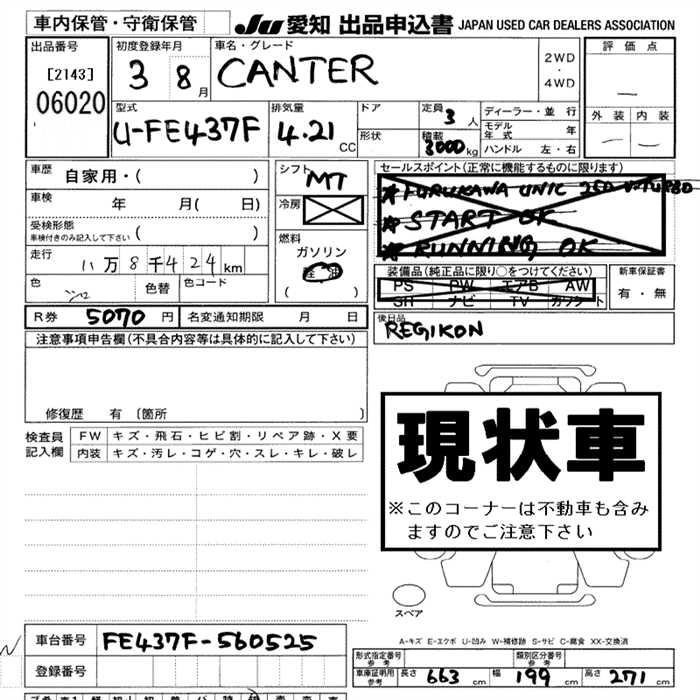 車内保管・守衛保管
JU 愛知 出品申込書 JAPAN USED CAR DEALERS ASSOCIATION
出品番号 初度登録年月 車名・グレード 評価点
[2143] 06020 3 8月 CANTER 2WD・4WD
型式 排気量 ドア 定員 3人 ディーラー・並行 外装 内装
U-FE437F 4.21 CC 形状 積載 3000kg モデル年式 年
ハンドル 左・右
車歴 自家用・( )
シフト MT
セールスポイント(正常に機能するものに限ります)
車検 年 月( 日)
冷房
*FURUKAWA UNIC
*START OK
*RUNNING OK
受検形態 車検付きのみ記入して下さい ( )
燃料 ガソリン
( )
走行 11万8千424km
装備品(純正品に限り○をつけてください) 新車保証書
PS PW エアB AW 有・無
SR ナビ TV カセット
色 色替 色コード
後日品
R券 5070円 名変通知期限 月 日
REGIKON
注意事項申告欄(不具合内容等は具体的に記入して下さい)
修復歴 有 〔箇所 〕
検査員記入欄 FW キズ・飛石・ヒビ割・リペア跡・X要
内装 キズ・汚レ・コゲ・穴・スレ・キレ・破レ
現状車
※このコーナーは不動車も含み
ますのでご注意下さい
スペア
A-キズ E-エクボ U-凹み W-補修跡 S-サビ C-腐食 XX-交換済
車台番号 FE437F-560525
登録番号
形式指定番号 参考 類別区分番号 参考
車庫証明用 参考 長さ 663cm 幅 199cm 高さ 271cm